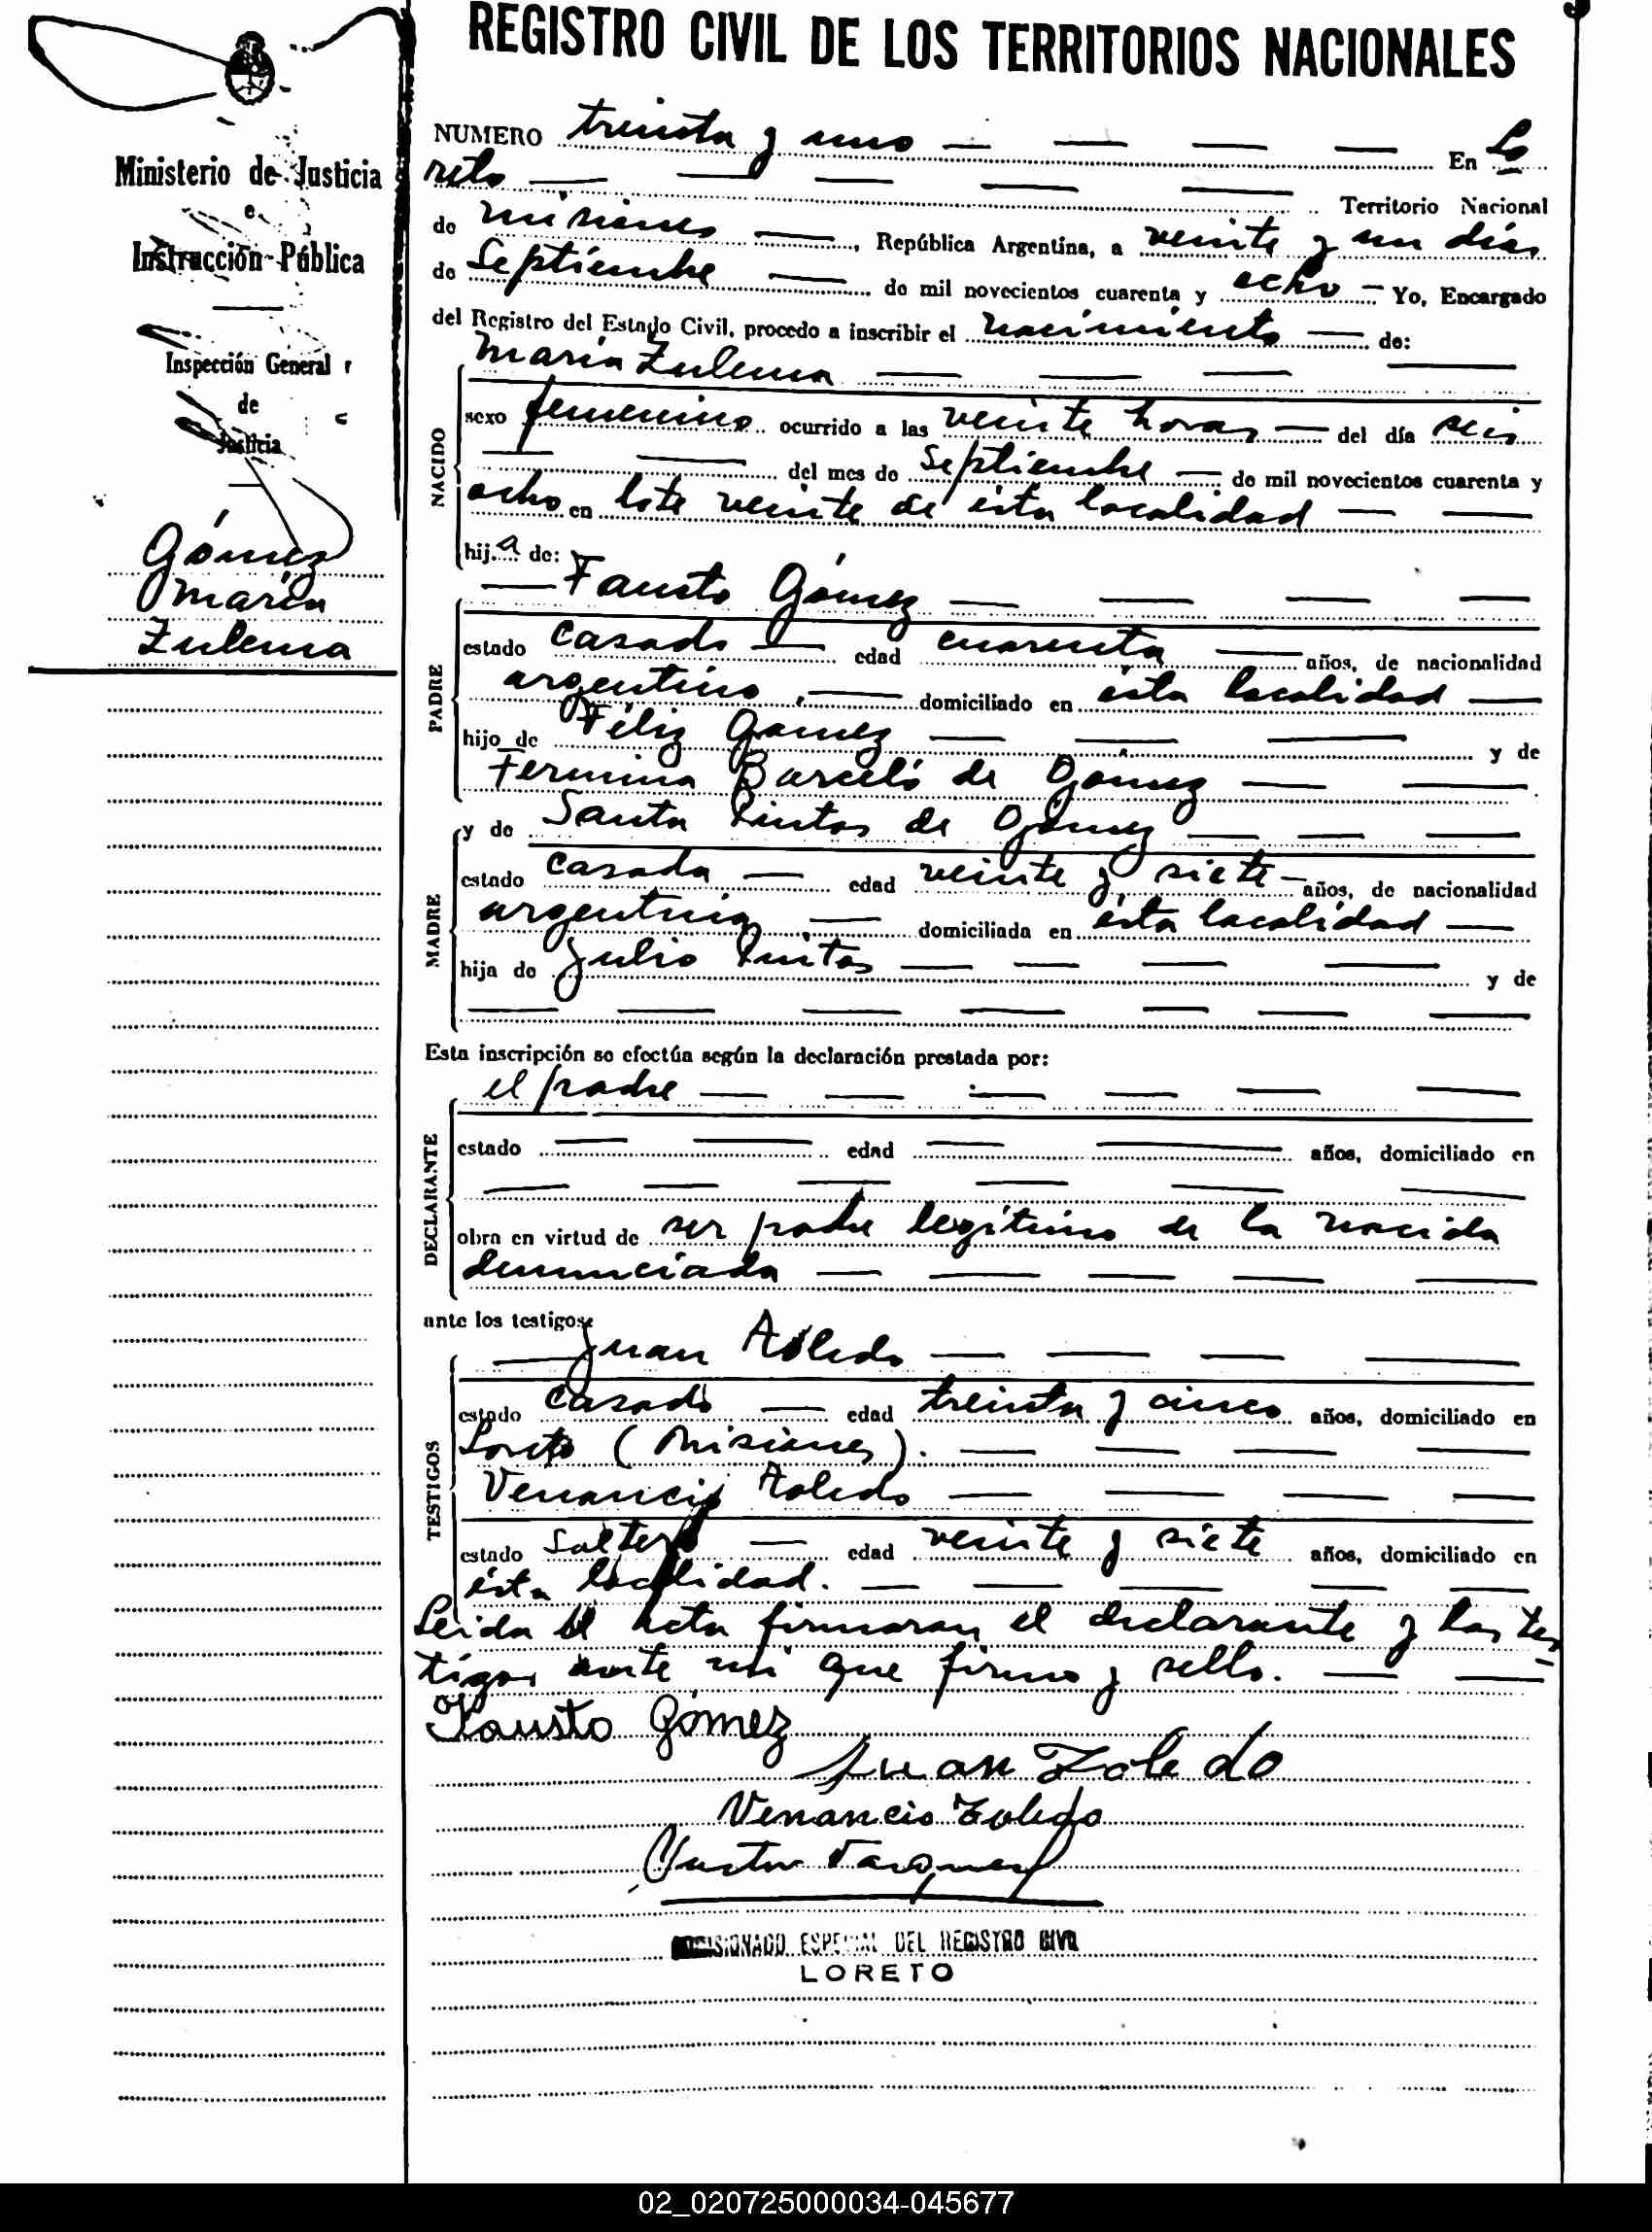 REGISTRO CIVIL DE LOS TERRITORIOS NACIONALES
Ministerio de Justicia
e
Instrucción Pública
Inspección General
de
Justicia
Gómez
María
Zulema
NUMERO treinta y uno — — — — En Lo
reto — — — — — Territorio Nacional
de Misiones —, República Argentina, a veinte y un días
de Septiembre — de mil novecientos cuarenta y ocho — Yo, Encargado
del Registro del Estado Civil, procedo a inscribir el nacimiento — de:
María Zulema — — — —
NACIDO
sexo femenino ocurrido a las veinte horas — del día seis
— — del mes de Septiembre — de mil novecientos cuarenta y
ocho en lote veinte de ésta localidad — —
hija de:
— Fausto Gómez — — — —
PADRE
estado casado — edad cuarenta — años, de nacionalidad
argentino, — domiciliado en ésta localidad —
hijo de Féliz Gómez — — — y de
Fermina Barceló de Gómez — —
MADRE
y de Santa Pintos de Gómez — — —
estado casada — edad veinte y siete — años, de nacionalidad
argentina — domiciliada en ésta localidad —
hija de Julio Pintos — — — — y de
— — — — — —
Esta inscripción se efectúa según la declaración prestada por:
el padre — — — — — —
DECLARANTE
estado — — edad — — años, domiciliado en
— — — — — —
obra en virtud de ser padre legítimo de la nacida
denunciada — — — — —
ante los testigos:
— Juan Toledo — — — —
TESTIGOS
estado casado — edad treinta y cinco años, domiciliado en
Loreto (Misiones). — — — —
Venancio Toledo — — — —
estado soltero — edad veinte y siete años, domiciliado en
ésta localidad. — — — — —
Leida el acta firmaron el declarante y los tes
tigos ante mi que firmo y sello. — —
Fausto Gómez
Juan Toledo
Venancio Toledo
COMISIONADO ESPECIAL DEL REGISTRO CIVIL
LORETO
02_020725000034-045677